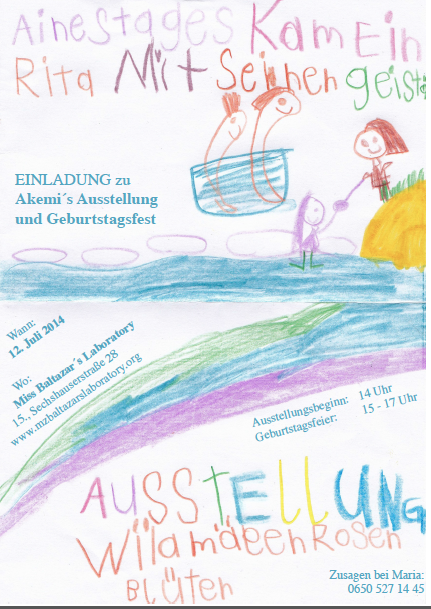 Ainestages Kam Ein
Rita Mit Seinen geist
EINLADUNG zu
Akemi´s Ausstellung
und Geburtstagsfest
Wann:
12. Juli 2014
Wo:
Miss Baltazar´s Laboratory
15., Sechshauserstraße 28
www.mzbaltazarslaboratory.org
Ausstellungsbeginn: 14 Uhr
Geburtstagsfeier: 15 - 17 Uhr
AUSSTELLUNG
Rosen
BLüten
Zusagen bei Maria:
0650 527 14 45